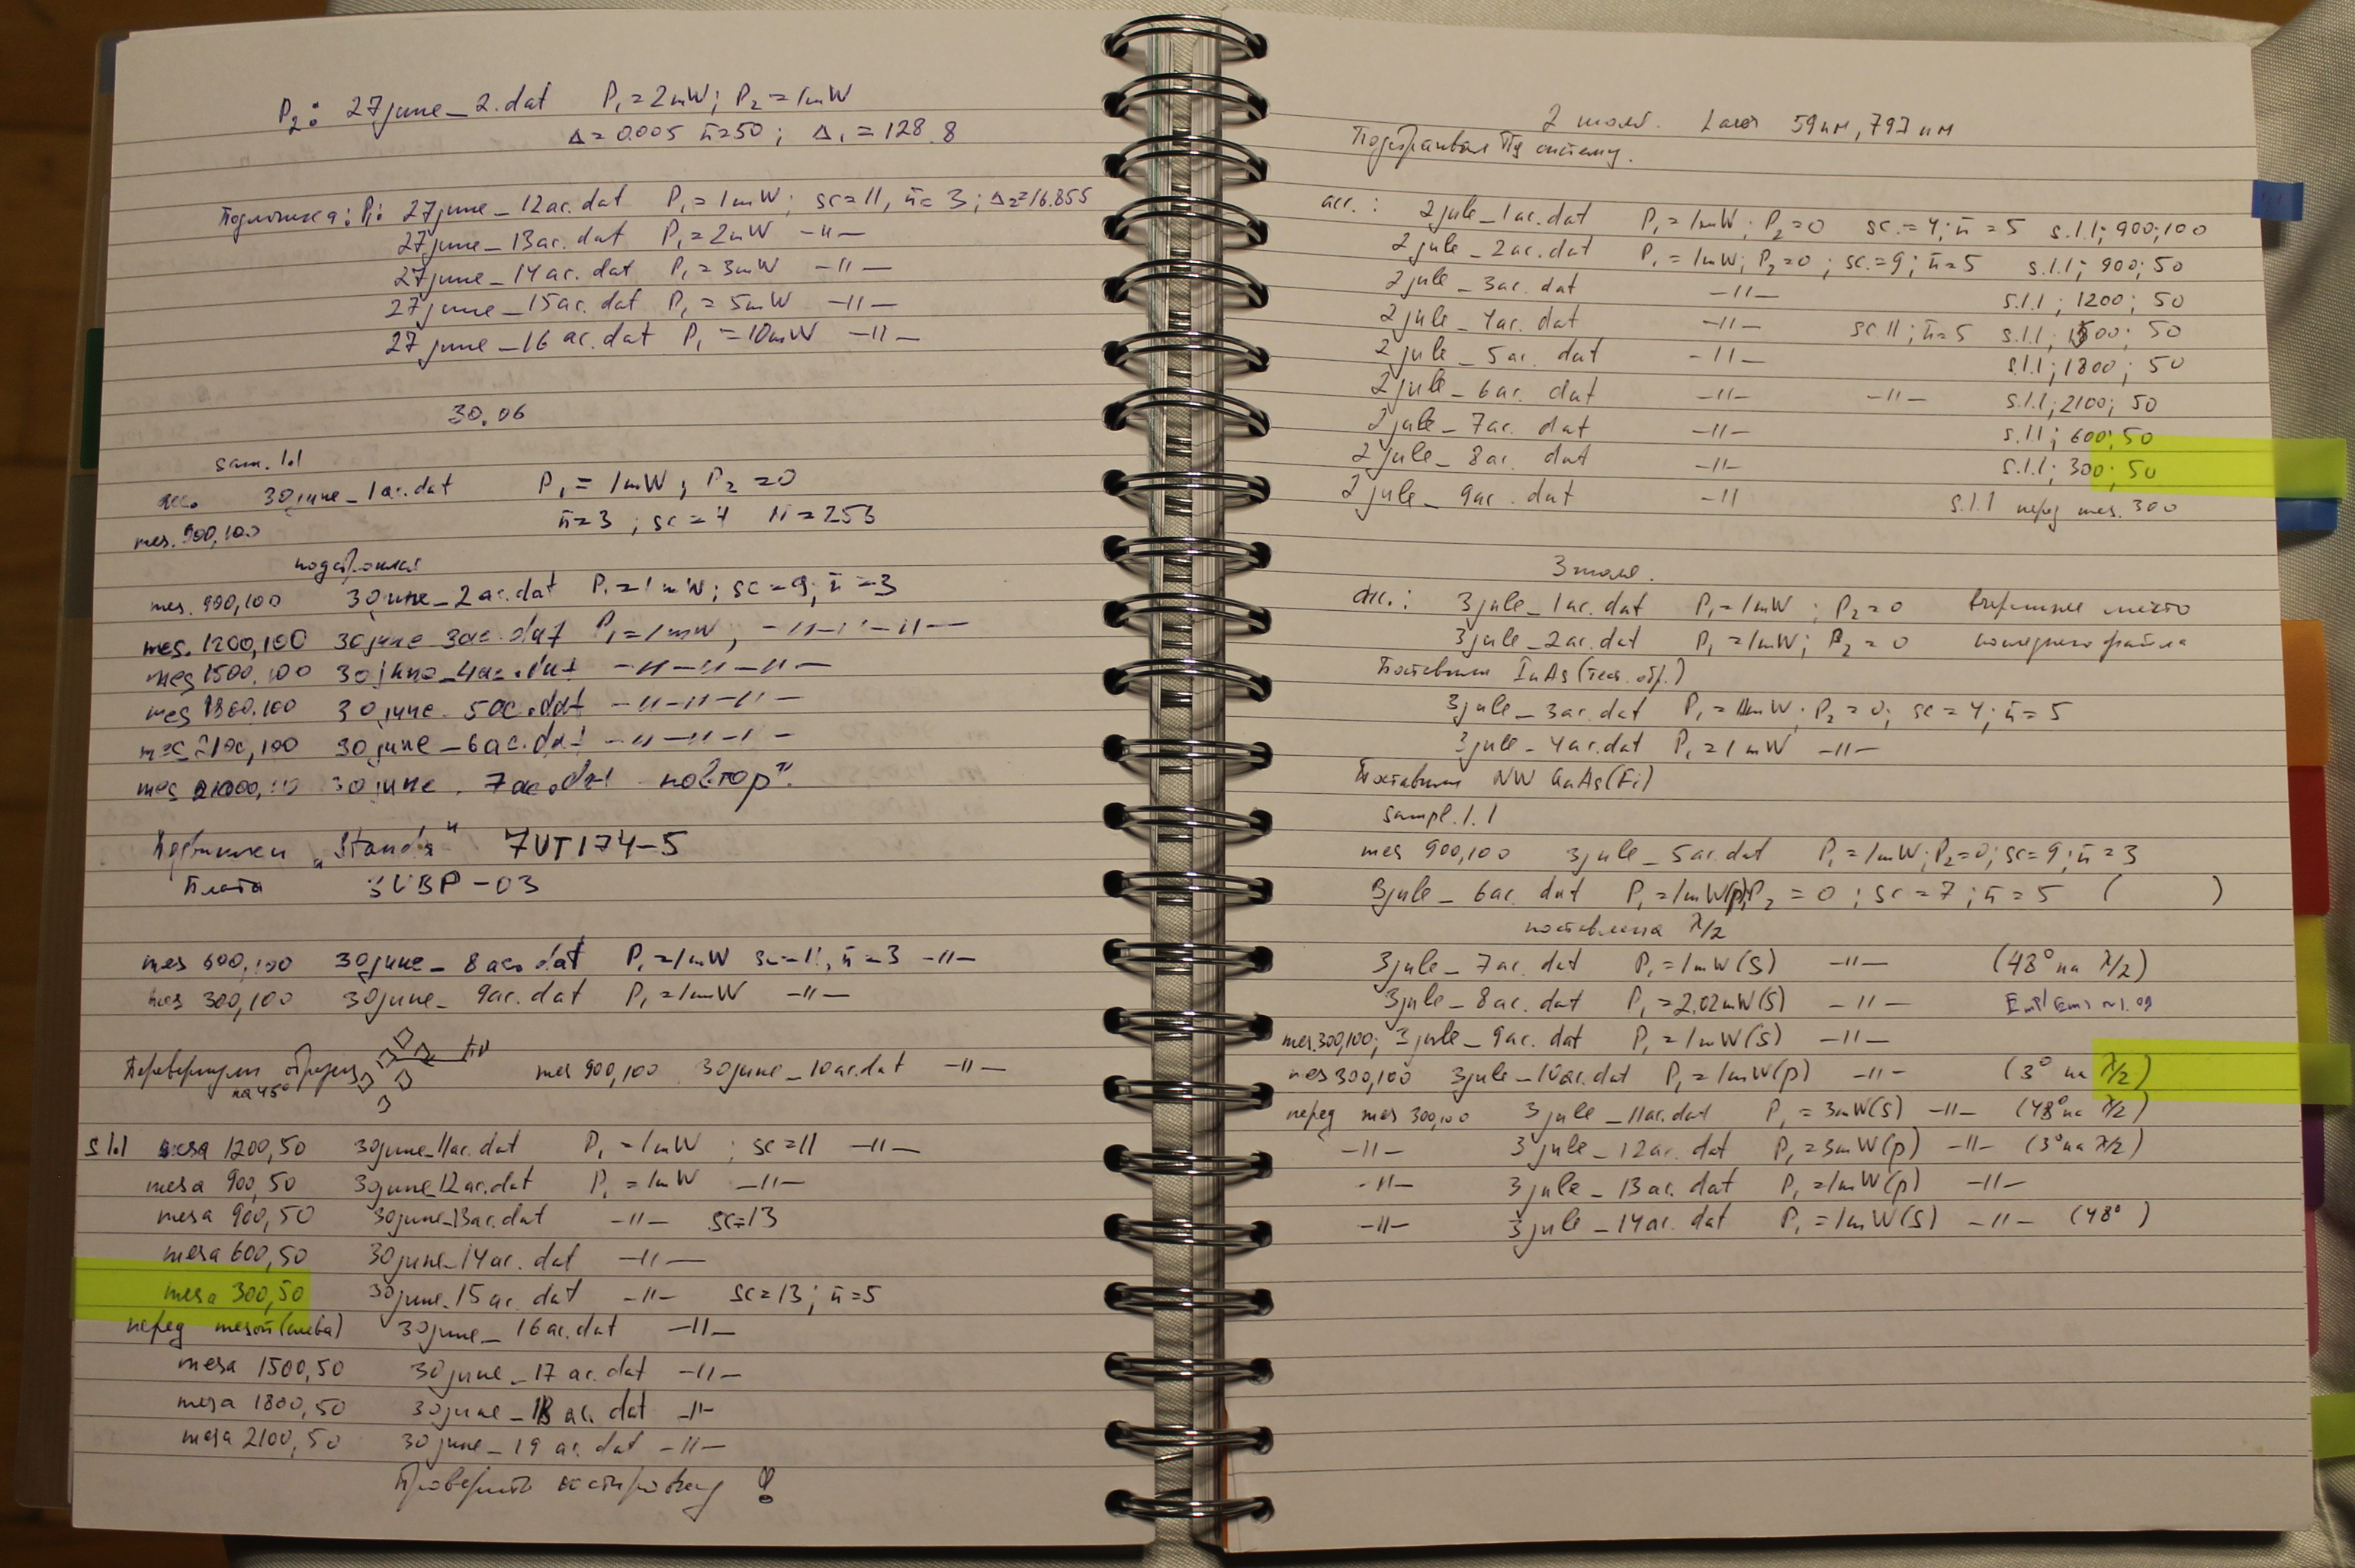 P₂: 27june_2.dat P₁=2mW; P₂=1mW
Δ=0.005 n̄=50; Δ₁=128.8
Подложка: P₁: 27june_12ac.dat P₁=1mW; sc=11, n̄=3; Δ=16.855
27june_13ac.dat P₁=2mW -11-
27june_14ac.dat P₁=3mW -11-
27june_15ac.dat P₁=5mW -11-
27june_16ac.dat P₁=10mW -11-
30.06
sam. 1.1
acc. 30june_1ac.dat P₁=1mW; P₂=0
mes. 900,100 n̄=3; sc=4 =253
mes. 900,100 30june_2ac.dat P₁=1mW; sc=9; n̄=3
mes. 1200,100 30june_3ac.dat P₁=1mW, -11-11-11-
mes 1500,100 30june_4ac.dat -11-11-11-
mes 1800,100 30june_5ac.dat -11-11-11-
mes 2100,100 30june_6ac.dat -11-11-11-
mes 30june_7ac.dat повтор"
Подвижки "Standa" 7VT174-5
Плата 3UBP-03
mes 600,100 30june_8ac.dat P₁=1mW sc=11, n̄=3 -11-
mes 300,100 30june_9ac.dat P₁=1mW -11-
Перевернули образец
на 45° mes 900,100 30june_10ac.dat -11-
s 1.1 mesa 1200,50 30june_11ac.dat P₁=1mW; sc=11 -11-
mesa 900,50 30june_12ac.dat P₁=1mW -11-
mesa 900,50 30june_13ac.dat -11- sc=13
mesa 600,50 30june_14ac.dat -11-
mesa 300,50 30june_15ac.dat -11- sc=13; n̄=5
перед мезой (слева) 30june_16ac.dat -11-
mesa 1500,50 30june_17ac.dat -11-
mesa 1800,50 30june_18ac.dat -11-
mesa 2100,50 30june_19ac.dat -11-
Проверить юстировку !
2 июля. 797 нм
систему.
acc.: 2jule_1ac.dat P₁=1mW; P₂=0 sc=4; n̄=5 s.1.1; 900;100
2jule_2ac.dat P₁=1mW; P₂=0; sc=9; n̄=5 s.1.1; 900; 50
2jule_3ac.dat -11- s.1.1; 1200; 50
2jule_4ac.dat -11- sc 11; n̄=5 s.1.1; 1500; 50
2jule_5ac.dat -11- s.1.1; 1800; 50
2jule_6ac.dat -11- -11- s.1.1; 2100; 50
2jule_7ac.dat -11- s.1.1; 600; 50
2jule_8ac.dat -11- s.1.1; 300; 50
2jule_9ac.dat -11 s.1.1 перед mes. 300
3 июля.
acc.: 3jule_1ac.dat P₁=1mW; P₂=0 вчерашнее место
3jule_2ac.dat P₁=1mW; P₂=0 последнего файла
Поставили InAs (тест. обр.)
3jule_3ac.dat P₁=1mW; P₂=0; sc=4; n̄=5
3jule_4ac.dat P₁=1mW -11-
Поставили NW GaAs
sampl. 1.1
mes 900,100 3jule_5ac.dat P₁=1mW; P₂=0; sc=9; n̄=3
3jule_6ac.dat P₁=1mW(p); P₂=0; sc=7; n̄=5 ( )
поставлена λ/2
3jule_7ac.dat P₁=1mW(s) -11- (48° на λ/2)
3jule_8ac.dat P₁=2.02mW(s) -11-
mes.300,100; 3jule_9ac.dat P₁=1mW(s) -11-
mes 300,100 3jule_10ac.dat P₁=1mW(p) -11- (3° на λ/2)
перед mes 300,100 3jule_11ac.dat P₁=3mW(s) -11- (48° на λ/2)
-11- 3jule_12ac.dat P₁=3mW(p) -11- (3° на λ/2)
-11- 3jule_13ac.dat P₁=1mW(p) -11-
-11- 3jule_14ac.dat P₁=1mW(s) -11- (48°)